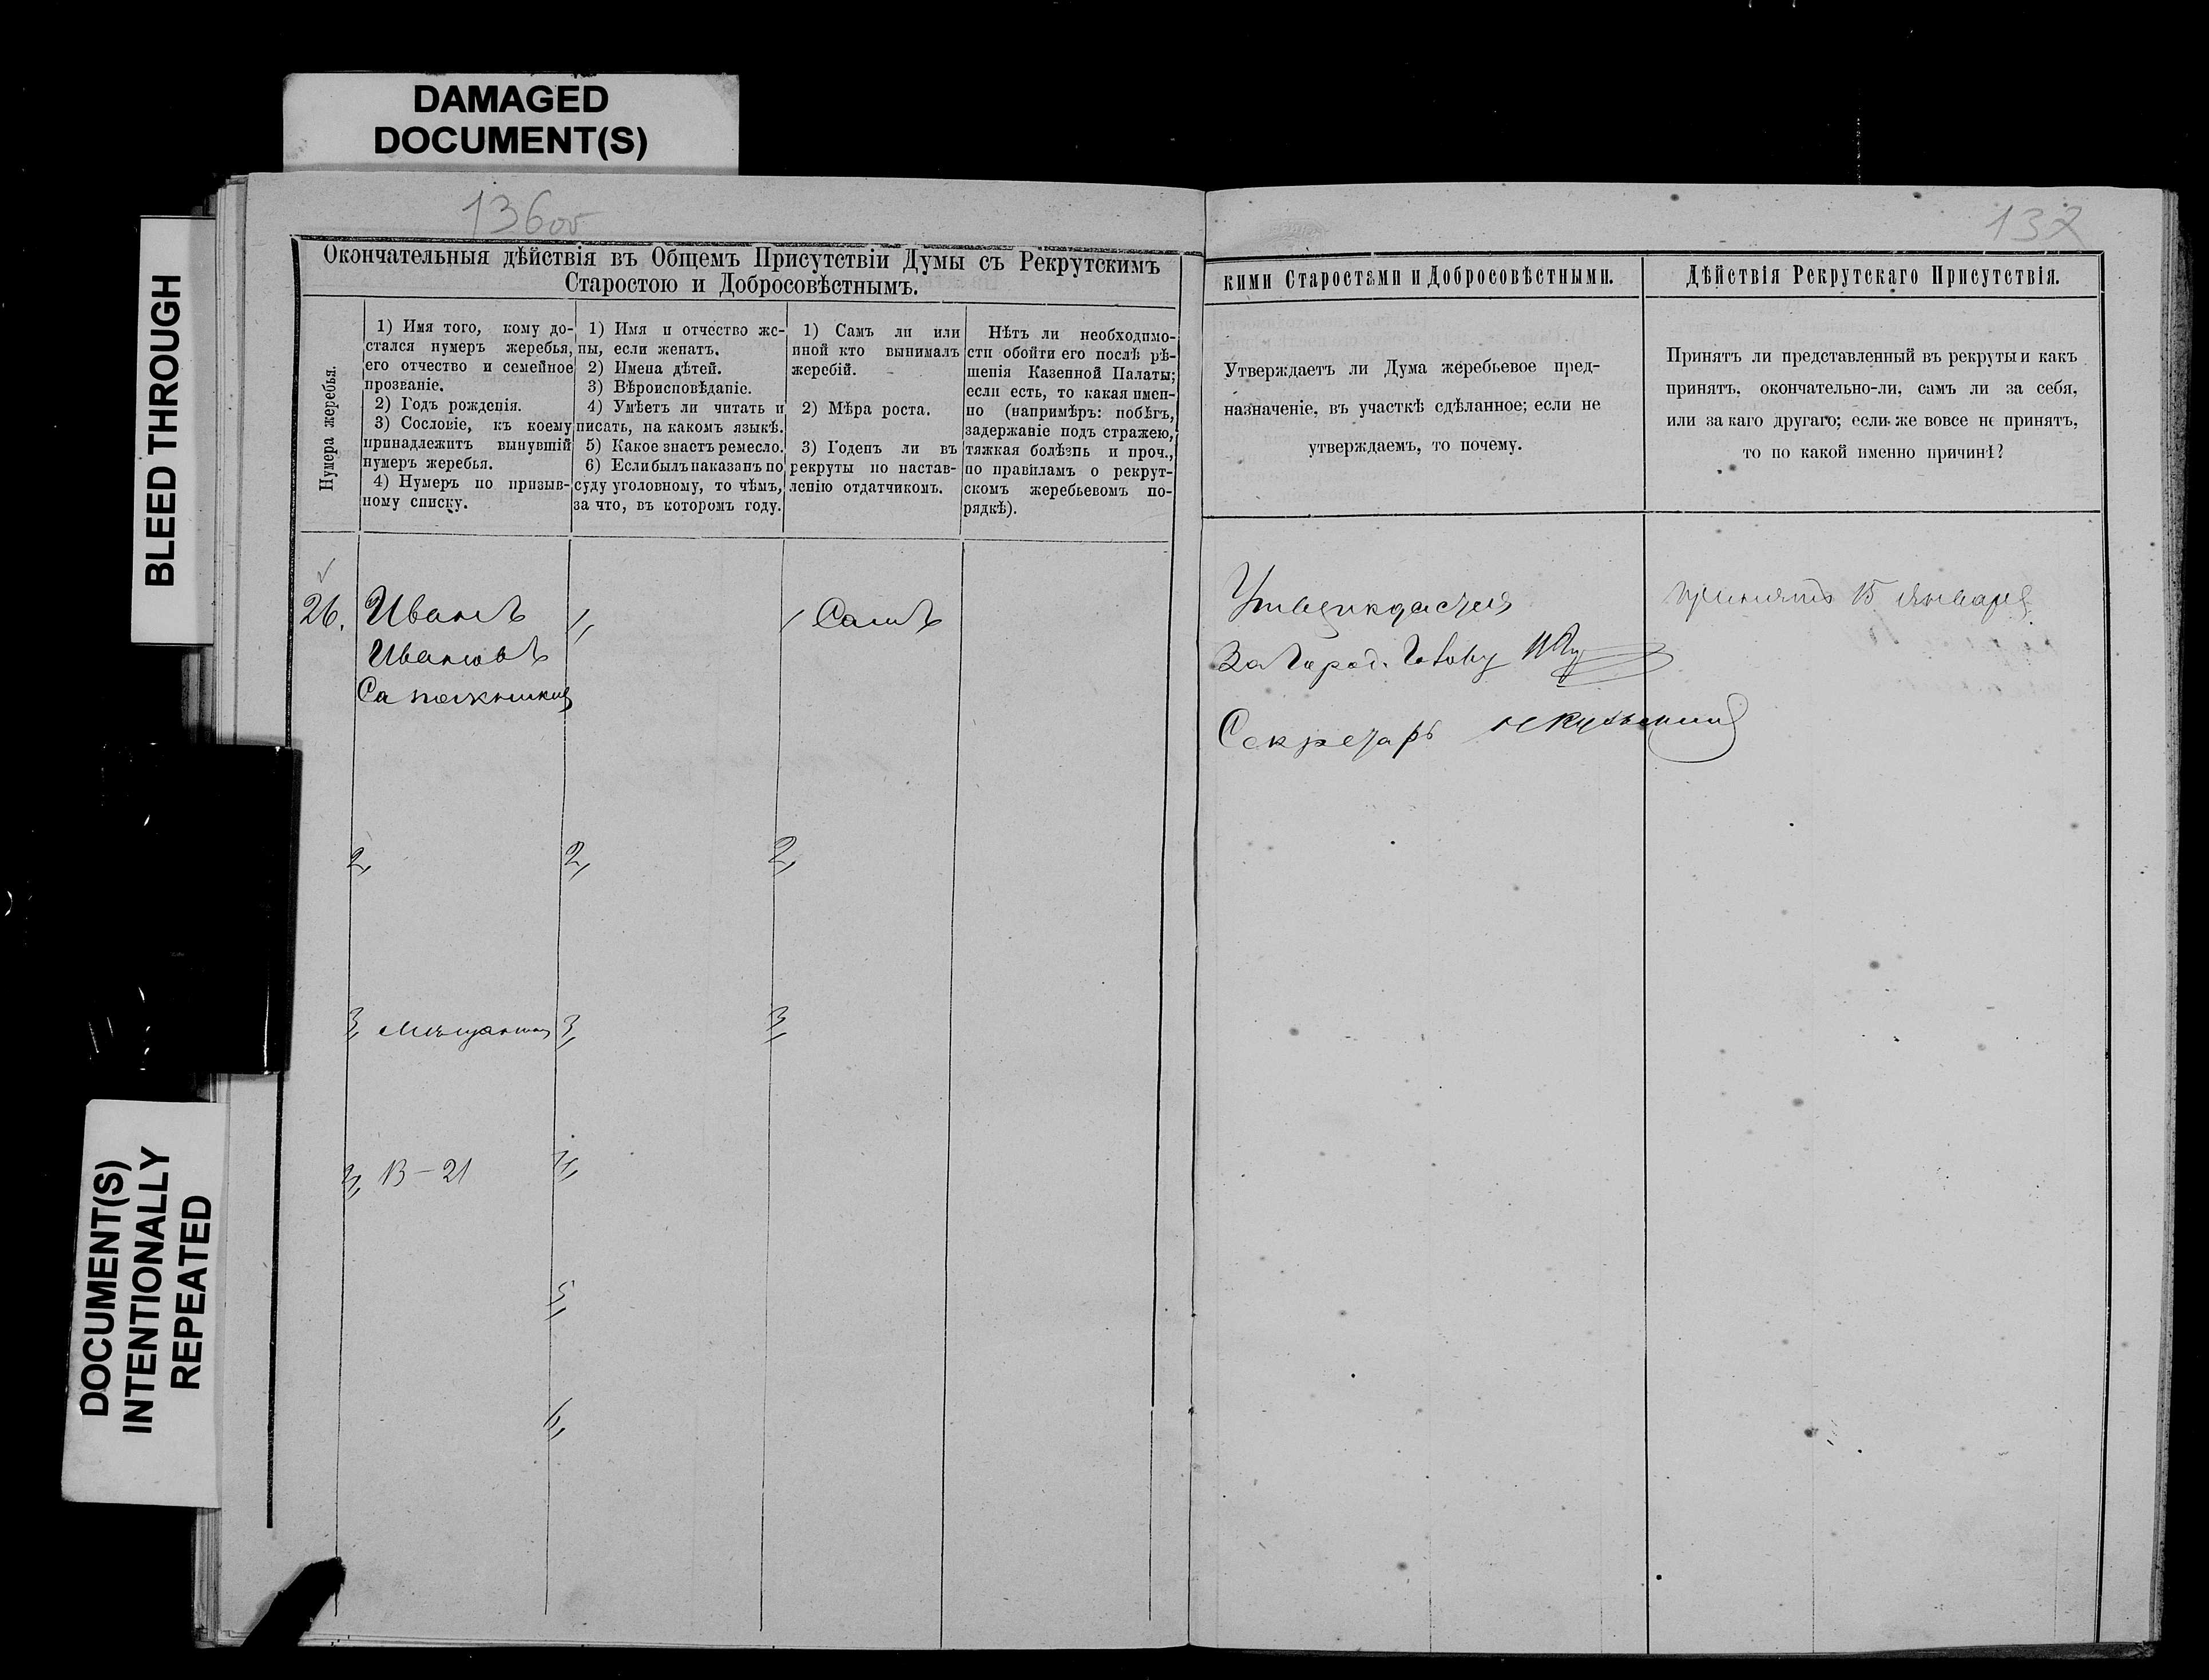 DAMAGED
DOCUMENT(S)
BLEED THROUGH
DOCUMENT(S)
INTENTIONALLY
REPEATED
136об
Окончательныя дѣйствія въ Общемъ Присутствіи Думы съ Рекрутскимъ
Старостою и Добросовѣстнымъ.
Нумера жеребья.
1) Имя того, кому до-
стался нумеръ жеребья,
его отчество и семейное
прозваніе.
2) Годъ рожденія.
3) Сословіе, къ коему
принадлежитъ вынувшій
нумеръ жеребья.
4) Нумеръ по призыв-
ному списку.
1) Имя и отчество же-
ны, если женатъ.
2) Имена дѣтей.
3) Вѣроисповѣданіе.
4) Умѣетъ ли читать и
писать, на какомъ языкѣ.
5) Какое знаетъ ремесло.
6) Если былъ наказанъ по
суду уголовному, то чѣмъ,
за что, въ которомъ году.
1) Самъ ли или
иной кто вынималъ
жеребій.
2) Мѣра роста.
3) Годенъ ли въ
рекруты по настав-
ленію отдатчикомъ.
Нѣтъ ли необходимо-
сти обойти его послѣ рѣ-
шенія Казенной Палаты;
если есть, то какая имен-
но (напримѣръ: побѣгъ,
задержаніе подъ стражею,
тяжкая болѣзнь и проч.,
по правиламъ о рекрут-
скомъ жеребьевомъ по-
рядкѣ).
26.
Иванъ
Ивановъ
Сапожников
1,
1 Самъ
2,
2,
2,
3, Мѣщанин
3,
3,
4, В - 21
4,
5,
6,
137
кими Старостами и Добросовѣстными.
Утверждаетъ ли Дума жеребьевое пред-
назначеніе, въ участкѣ сдѣланное; если не
утверждаемъ, то почему.
Утверждается
За Город. Голову
Секретарь
Дѣйствія Рекрутскаго Присутствія.
Принятъ ли представленный въ рекруты и какъ
принятъ, окончательно-ли, самъ ли за себя,
или за каго другаго; если же вовсе не принятъ,
то по какой именно причинѣ?
принятъ 15 января